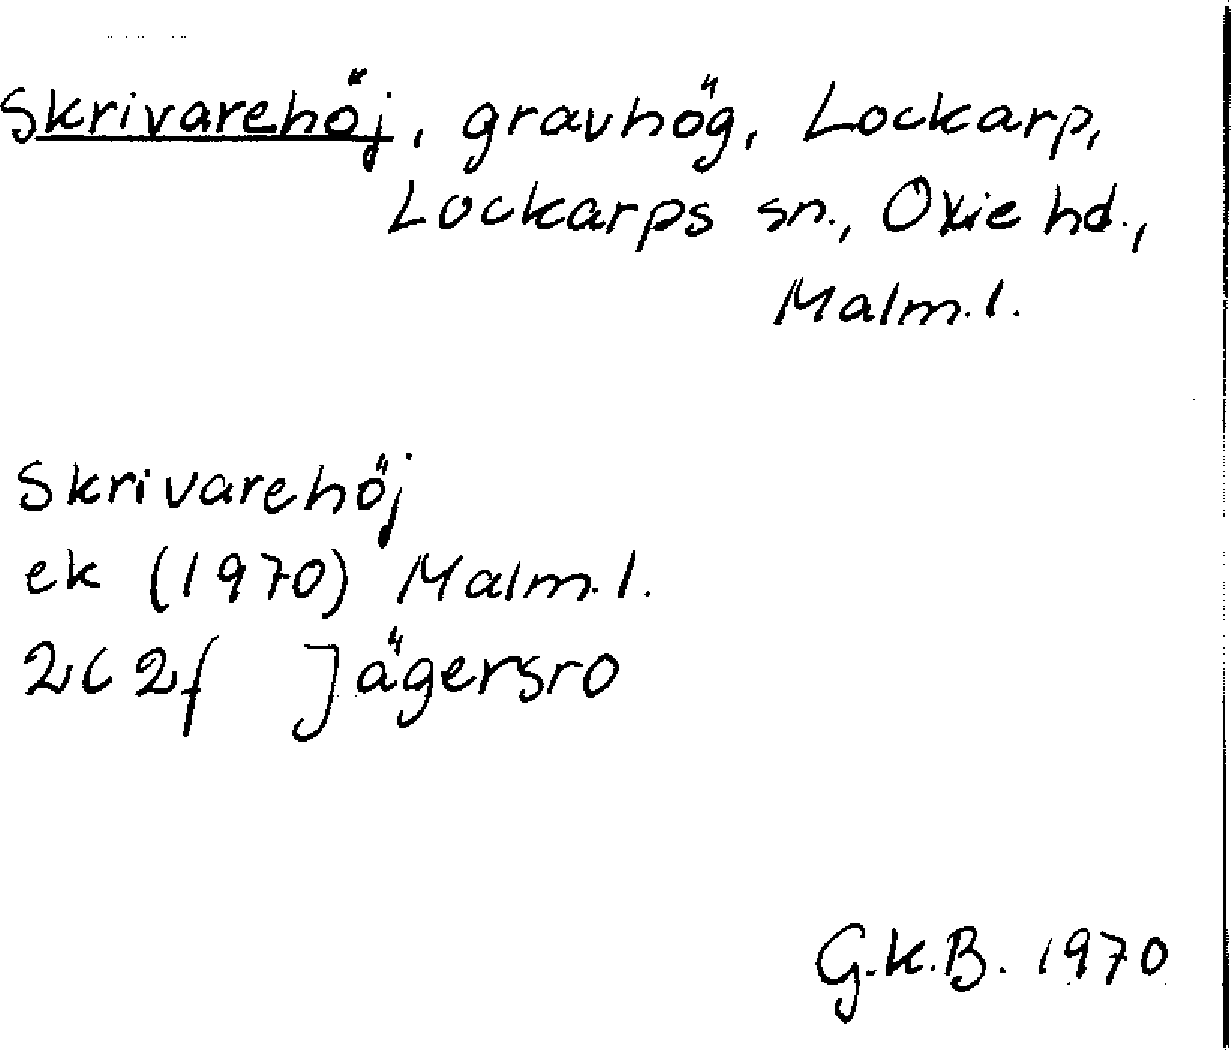 Skrivarehöj, gravhög, Lockarp,
Lockarps sn., Oxie hd.,
Malm.l.
Skrivarehöj
ek (1970) Malm.l.
2C2f Jägersro
G.K.B. 1970